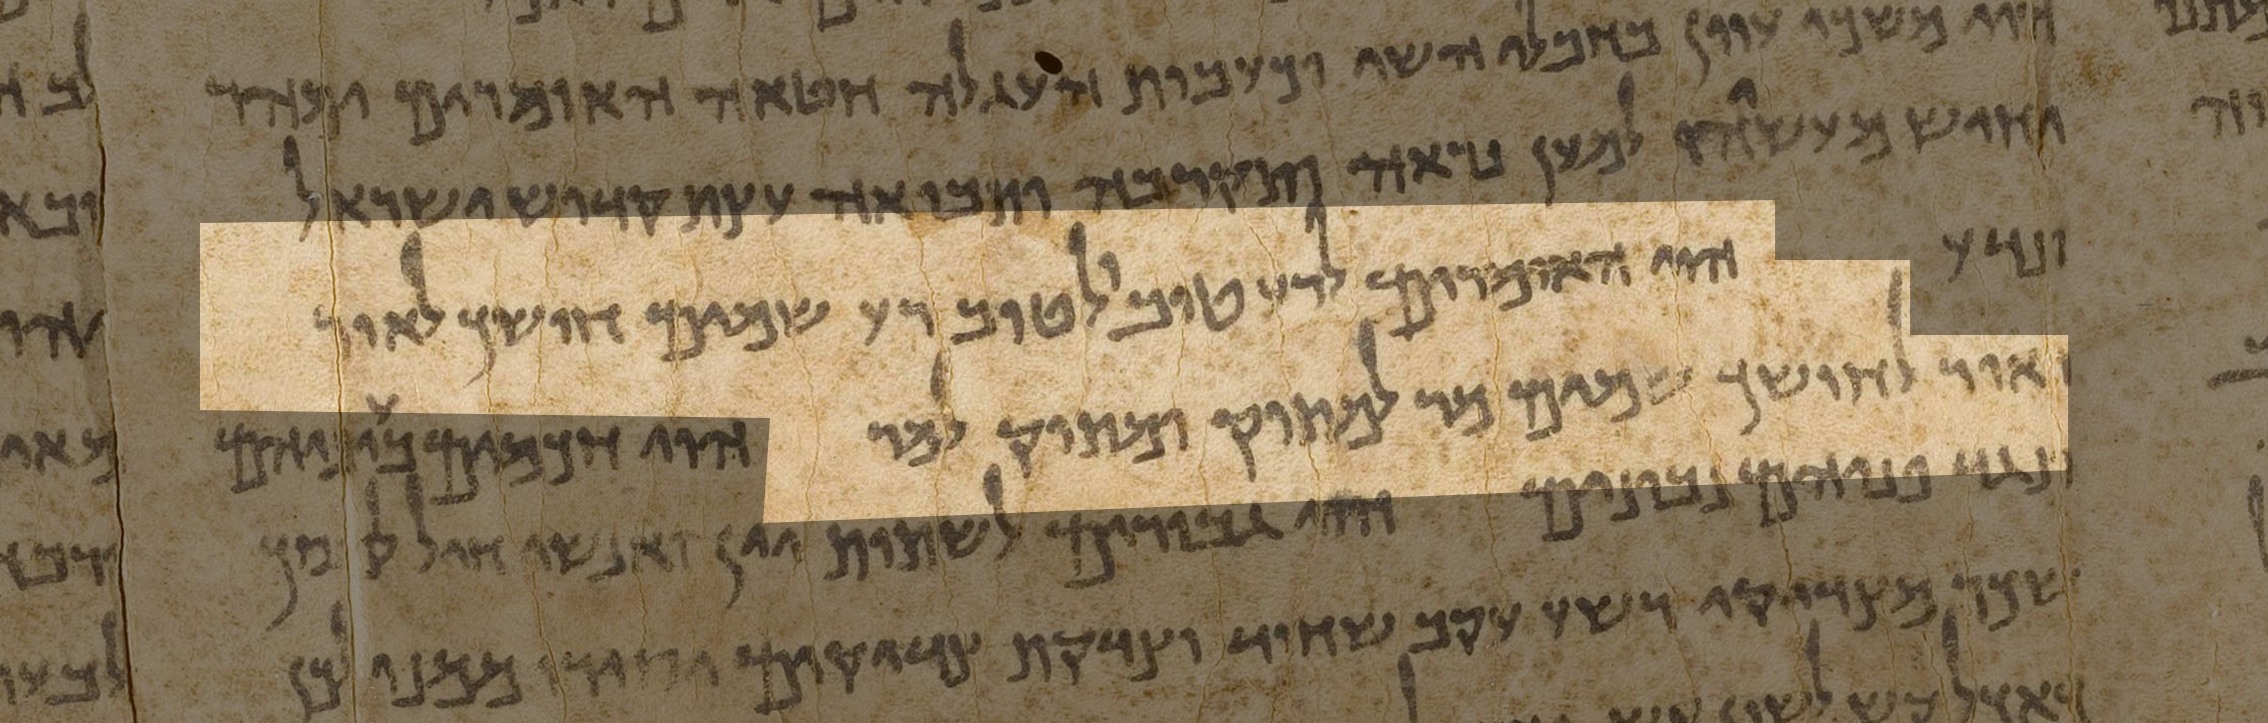 הוי משכי עוון בחבלי השי וכעבות העגלה חטאה האומרים ימהר
יחיש מעשיהו למען נראה ותקרבה ותבואה עצת קדוש ישראל
ונדע הוי האומרים לרע טוב ולטוב רע שמים חושך לאור
ואור לחושך שמים מר למתוק ומתוק למר הוי חכמים בעיניהם
ונגד פניהם נבונים הוי גבורים לשתות יין ואנשי חיל למסך
שכר מצדיקי רשע עקב שוחד וצדקת צדיקים יסירו ממנו לכן
כאוכל קש לשון אש